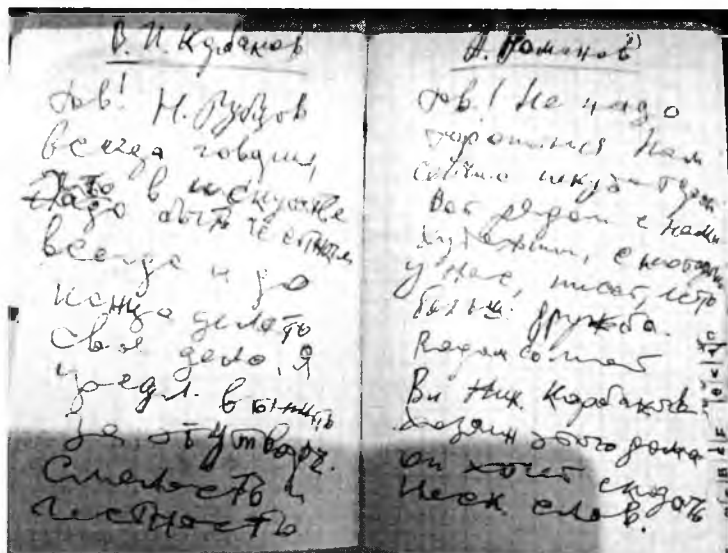 В. И. Курбанов
Тов! Н. Рубцов
всегда говорил,
что в искусстве
надо быть честным
всегда и до
конца делать
свое дело. Я
предл. выпить
за эту творч.
смелость и
честность
А. Романов
Тов! Не надо
торопиться Нам
сейчас некуда
Вот рядом с нами
художники, с которыми
у нас, писат, есть
больш. дружба.
Рядом со мной
Вл Ник. Корбаков
хозяин этого дома
он хочет сказать
неск. слов.